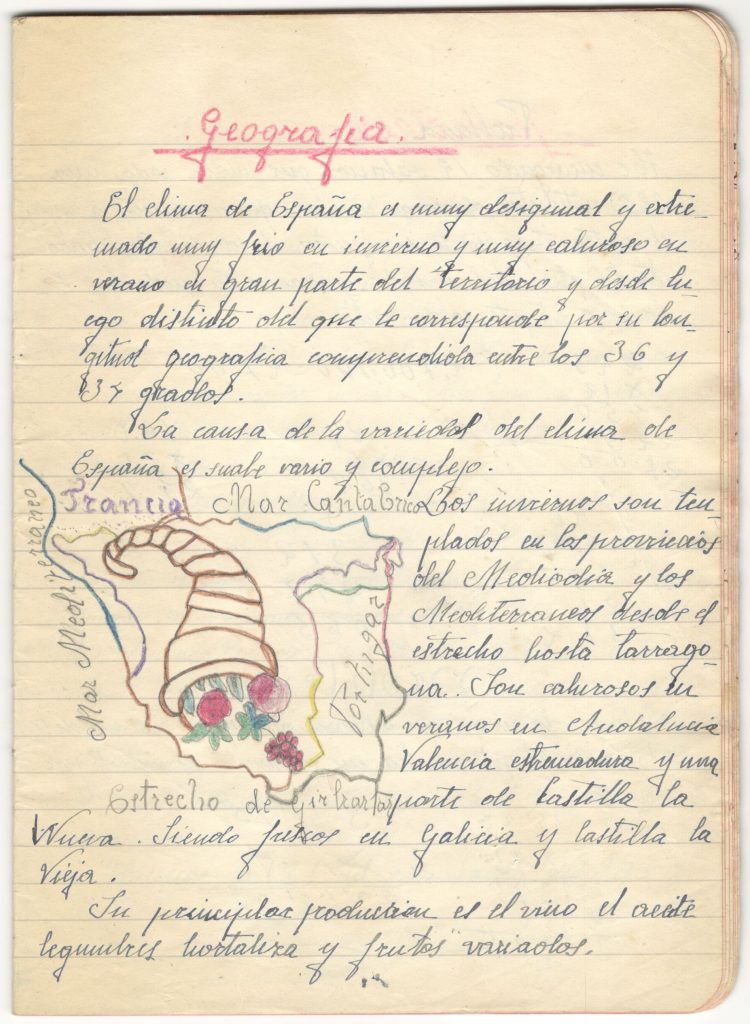 . Geografia.
El clima de España es muy desigual y extre-
mado muy frio en invierno y muy caluroso en
verano en gran parte del territorio y desde lu
ego distinto del que le corresponde por su lon-
gitud geografica comprendida entre los 36 y
37 grados.
La causa de la variedad del clima de
España es suabe vario y complejo.
Francia
Mar Cantabrico
Mar Mediterraneo
Portugar
Estrecho de Girbartar
Los inviernos son tem
plados en las provincias
del Mediodia y los
Mediterraneos desde el
estrecho hasta tarrago-
na. Son calurosos en
veranos en Andalucia
Valencia estremadura y una
parte de Castilla la
Nueva. Siendo friscos en Galicia y Castilla la
Vieja.
Su principlar producion es el vino el aceite
legumbres hortaliza y frutos variados.